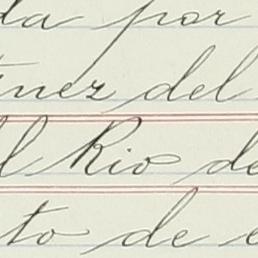 da por
nez del
l Rio de
to de